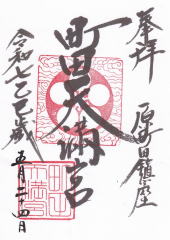 奉拝
原町田鎮座
町田天満宮
令和七乙巳歳
五月二十四日